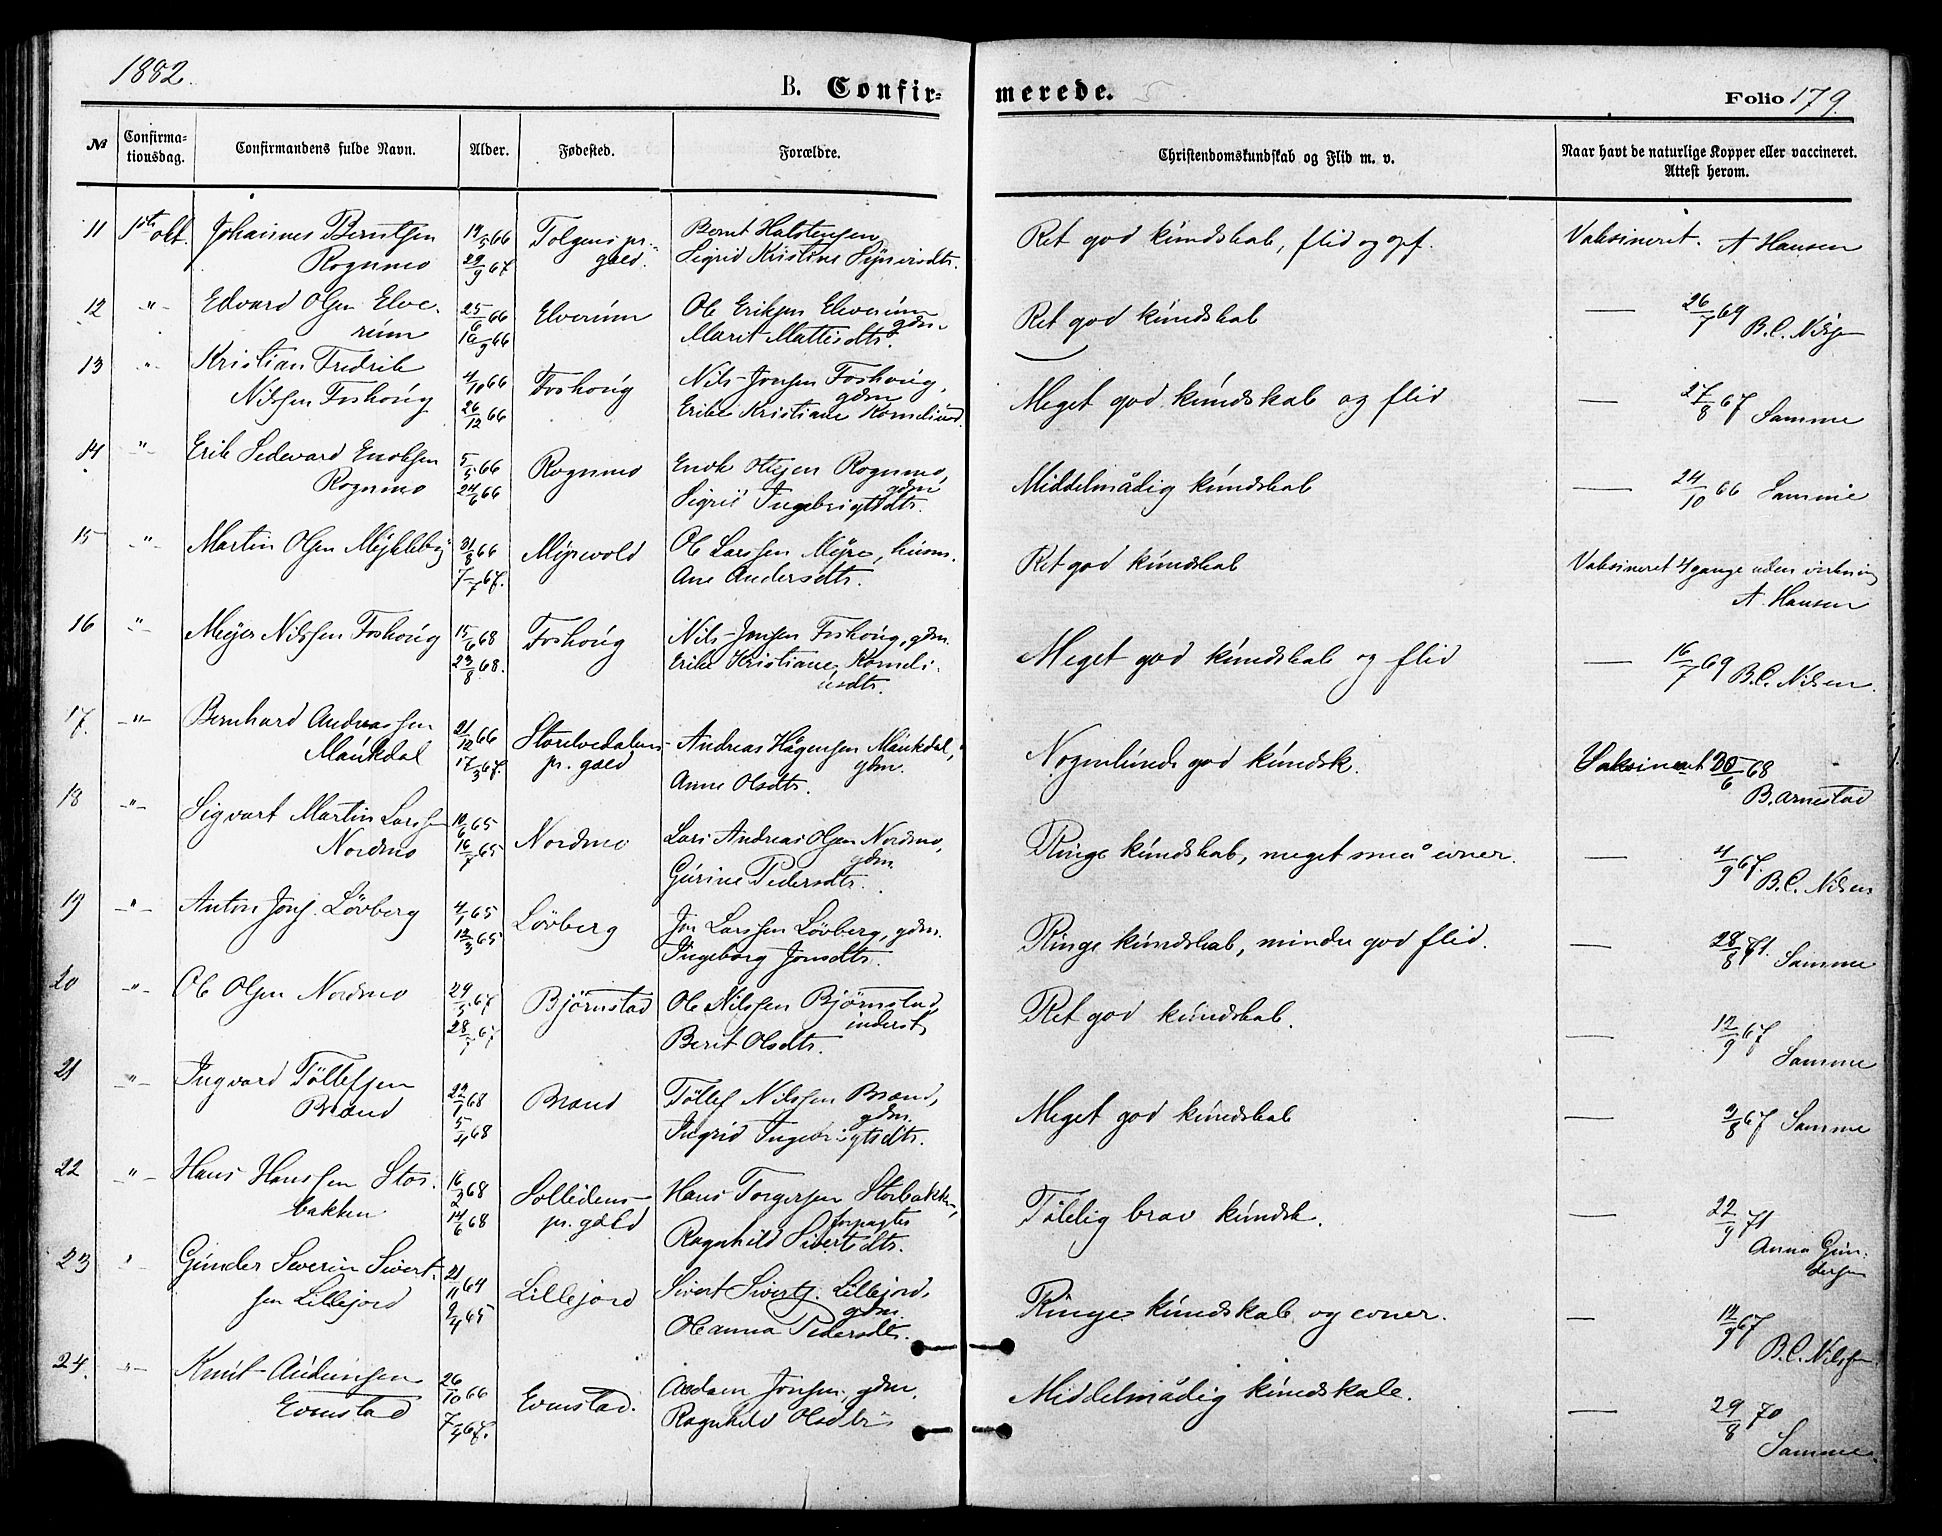 1882.
B. Confir-
merede.
Folio 179.
№
Confirma-
tionsdag.
Confirmandens fulde Navn.
Alder.
Fødested.
Forældre.
Christendomskundskab og Flid m. v.
Naar havt de naturlige Kopper eller vaccineret.
Attest herom.
11 1ste okt. Johannes Berntsen 19/5 66 Tolgens pr.- Bernt Halstensen Ret god kundskab, flid og opf. Vaksineret. A Hansen
Rognmo 29/9 67 gæld. Sigrid Kristine
12 -"- Edvard Olsen Elve- 25/6 66 Elverum Ole Eriksen Elverum Ret god kundskab — 26/7 69
rum 16/9 66 gdm Marit Mattisdtr. B.C. Nilsen
13 -"- Kristian Fredrik 4/10 66 Foshoug Nils Jonsen Foshoug, Meget god kundskab og flid — 27/8 67
Nilssen Foshoug 26/12 66 gdm Erike Kristiane Samme
14 -"- Erik Sedevard Enoksen 5/5 66 Rognmo Enok Rognmo, Middelmådig kundskab — 24/10 66 Samme
Rognmo 24/6 66 gdm Sigrii Ingebrigtsdtr.
15 -"- Martin Olsen 31/8 66 Myrevold Ole Larssen Myre, husm. Ret god kundskab Vaksineret 4 gange uden virkning
7/7 67. Ane Andersdtr. A. Hansen
16 -"- Meyer Nilssen Foshoug 15/6 68 Foshoug Nils Jonsen Foshoug, gdm. Meget god kundskab og flid — 16/7 69
23/8 68. Erike Kristiane Korneli- B.C. Nilsen.
usdtr.
17. -"- Bernhard Andreassen 21/12 66 Storelvedalens Andreas Hågensen Maukdal, Nogenlunde god kundsk. Vaksineret 30/6 68
Maukdal 17/3 67. pr. gæld gdm. B. Arnestad
Anne Olsdtr.
18 -"- Sigvart Martin Larssen 10/6 65 Nordmo Lars Andreas Olsen Nordmo, Ringe kundskab, meget små evner. — 4/9 67.
Nordmo 16/7 65 gdm. B.C. Nilsen
Gurine Pedersdtr.
19 -"- Anton Jons. Lövberg 4/1 65 Lövberg Jon Larssen Lövberg, gdm. Ringe kundskab, mindre god flid. — 28/8 71.
12/3 65 Ingeborg Jonsdtr. Samme
20 -"- Ole Olsen Nordmo 29/5 67 Björnstad Ole Nilssen Björnstad, Ret god kundskab. — 12/9 67
28/7 67 inderst Samme
Berit Olsdtr.
21 -"- Ingvard Töllefsen 22/1 68 Brænd Töllef Nilssen Brænd, Meget god kundskab — 3/8 67 Samme
Brænd 5/4 68 gdm.
Ingrid Ingebrigtsdtr.
22 -"- Hans Hanssen Stor- 16/3 68 pr. gæld Hans Torgersen Storbakken, Tålelig brav kundsk. — 22/9 71
bakken 14/6 68 forpagter Anna Gun-
Ragnhild Sivertsdtr. dersen
23 " Gunder Severin Sivert- 21/11 64 Lillejord Sivert Siverts. Lillejord, Ringe kundskab og evner. — 12/9 67
sen Lillejord 9/4 65 gdm. B.C. Nilssen
Olianna Pedersdtr.
24. -"- Knut Audunsen 26/10 66 Evenstad. Jonsen, gdm. Middelmådig kundskab. — 29/8 70
Evenstad 67. Ragnhild Olsdtr Samme